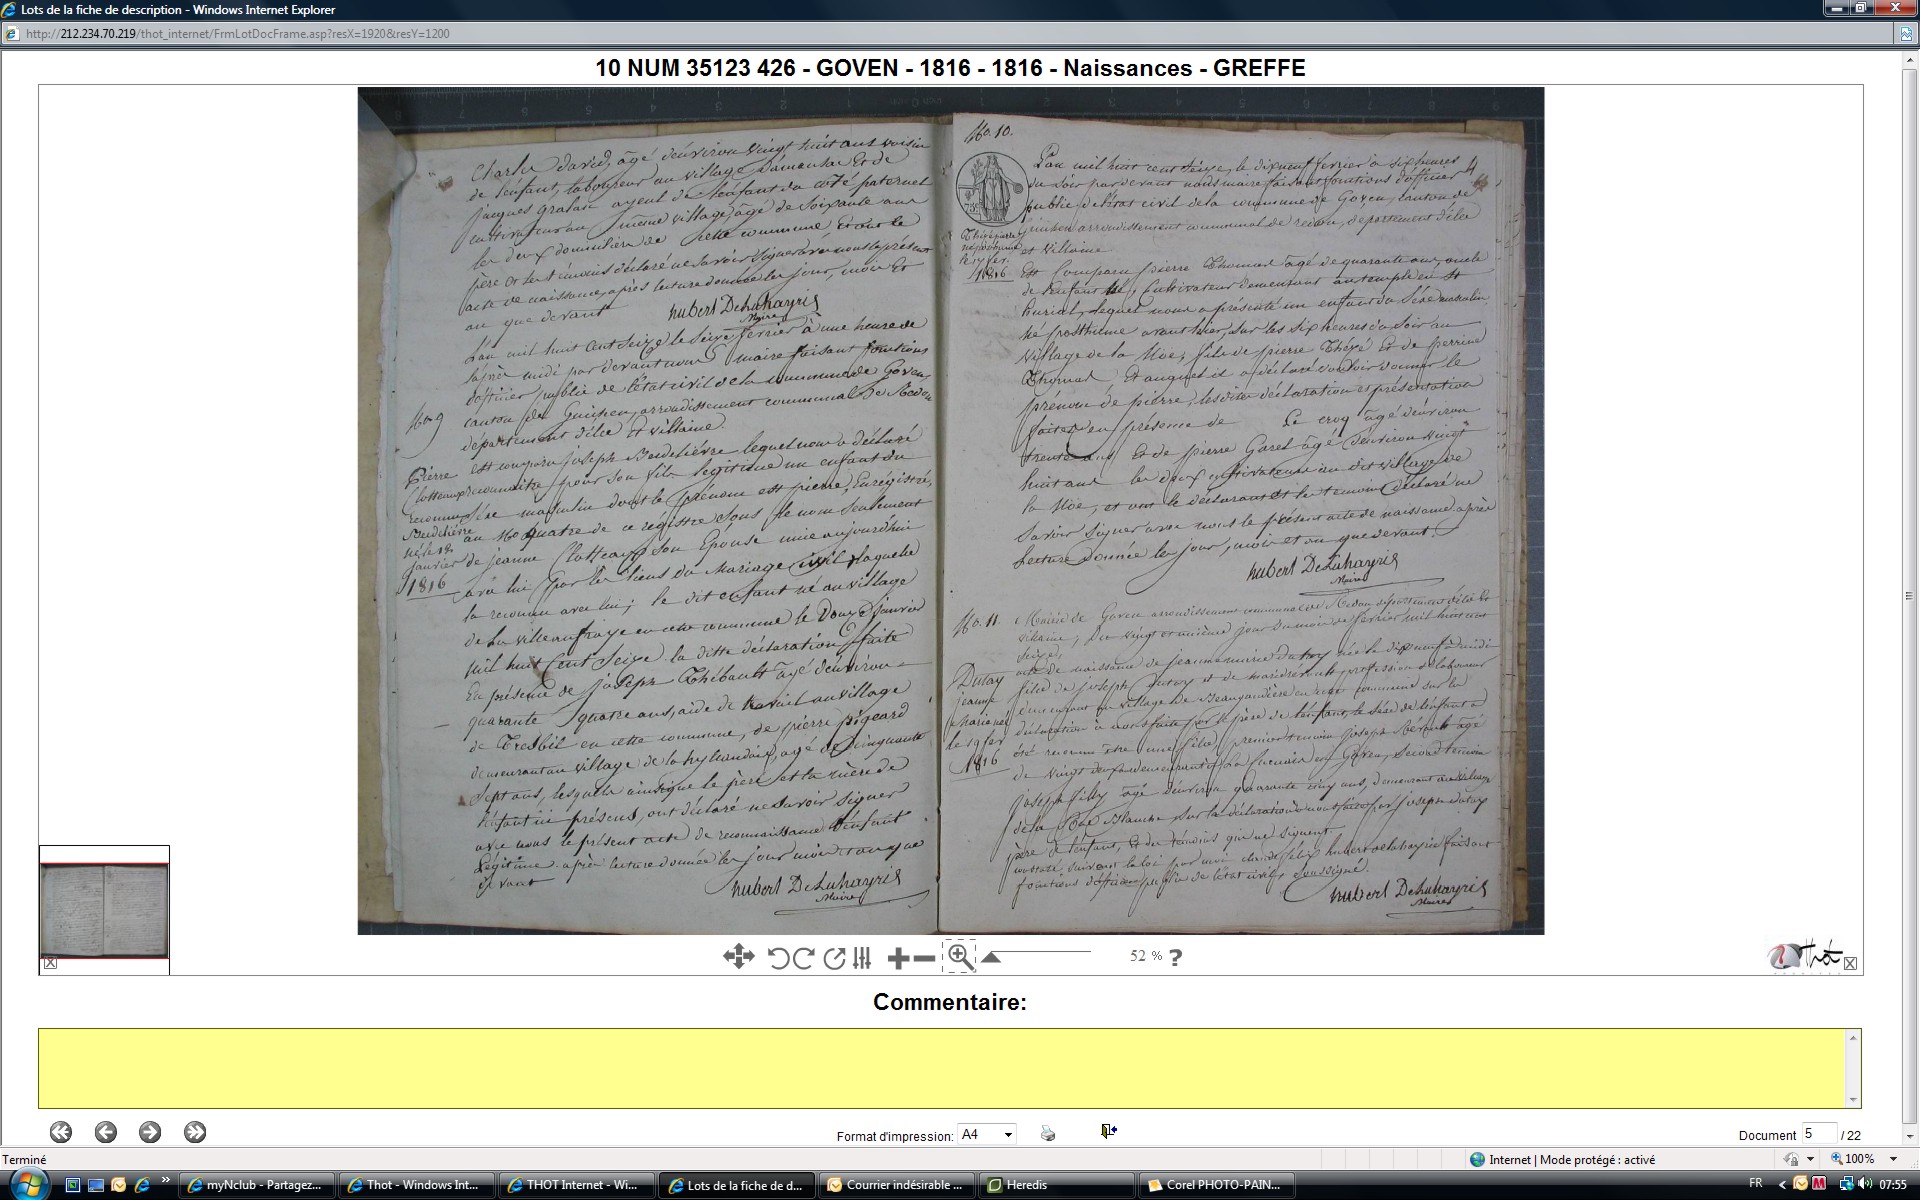 Lots de la fiche de description - Windows Internet Explorer
http://212.234.70.219/thot_internet/FrmLotDocFrame.asp?resX=1920&resY=1200
10 NUM 35123 426 - GOVEN - 1816 - 1816 - Naissances - GREFFE
Charles david, âgé d'environ vingt huit ans voisin
de l'enfant, laboureur au village et de
jacques ayeul de l'enfant du côté paternel
cultivateur au même village âgé de soixante ans
les deux domiciliés de cette commune et ont le
père et les témoins déclaré ne savoir signer avec nous le présent
acte de naissance, après lecture donnée les jour, mois et
an que devant
hubert DeLahayris
Maire
L'an mil huit cent seize le seize fevrier à une heure de
l'après midi par devant nous maire faisant fonctions
d'officier public de l'état civil de la commune de Goven,
canton de Guichen, arrondissement communal de Redon
département d'ille et villaine.
No. 9
est comparu joseph lequel nous a déclaré
reconnaître pour son fils légitime un enfant du
sexe masculin dont le prénom est pierre, Enrégistré,
au No. quatre de ce registre sous le nom seulement
de jeanne son Epouse unie aujourd'hui
avec lui par les liens du Mariage civil, laquelle
la reconnu avec lui; le dit enfant né au village
de la en cette commune le Douze janvier
mil huit Cent Seize la ditte déclaration faite
En présence de joseph Thébault âgé d'environ
quarante quatre ans, aide de travail au village
de Tresbil en cette commune, de pierre pigeard
demeurant au village de la agé de Cinquante
Sept ans, lesquels ainsi que le père et la mère de
l'enfant ici présens, ont déclaré ne savoir signer
avec nous le présent acte de reconnaissance d'enfant
Légitime après lecture donnée les jour mois et an que
devant
hubert DeLahayris
Maire
Pierre
reconnu
né le 12
janvier
1816
No. 10.
L'an mil huit cent Seize, le dixneuf fevrier à six heures
du Soir par devant nous maire faisant fonctions d'officier
public d'état civil de la commune de Goven, canton de
guichen arrondissement communal de redon, département d'ille
et Villaine
75c
Thézé pierre
né posthume
le 17 fev.
1816
Est Comparu pierre Thomas âgé de quarante ans, oncle
de l'enfant, Cultivateur demeurant au temple en
Buriel, lequel nous a présenté un enfant du Sexe masculin
né posthume avant hier, sur les six heures du Soir au
Village de la Noë, fils de pierre Thézé Et de perrine
Thomas Et auquel il a déclaré vouloir donner le
prénom de pierre, les dites déclaration et présentation
faites en présence de Le croq âgé d'environ
trente ans Et de pierre Garel âgé d'environ vingt
huit ans les deux cultivateurs au dit village de
la Noë, et ont le déclarant et les temoins déclaré ne
Savoir Signer avec nous le présent acte de naissance après
Lecture Donnée les jour, mois et an que devant.
hubert DeLahayris
Maire
No. 11.
Mairie de Goven arrondissement communal de Redon département d'ille et
vilaine, Du vingt et unième jour du mois de fevrier mil huit cent
seize,
acte de naissance de jeanne marie Dutay née le dixneuf à midi
fille de joseph Dutay et de profession de laboureur
demeurant au village de en cette commune sur la
déclaration à nous faite par le père de l'enfant, le Sexe de l'enfant a
été reconnu être une fille, premier temoin joseph âgé
de vingt demeurant à en Goven, Second temoin
joseph âgé d'environ quarante cinq ans, demeurant au village
de la Blanche sur la déclaration à nous faite par joseph Dutay
père de l'enfant, et des témoins qui ne signent
constaté, suivant la loi par moi hubert delahayris faisant
fonctions d'officier public de l'état civil, Soussigné.
hubert DeLahayris
Maire
Dutay
jeanne
Marie née
le 19 fev
1816
52 %
?
Thot
Commentaire:
Format d'impression: A4
Document 5 / 22
Terminé
Internet | Mode protégé : activé
100%
myNclub - Partagez...
Thot - Windows Int...
THOT Internet - Wi...
Lots de la fiche de d...
Courrier indésirable ...
Heredis
Corel PHOTO-PAIN...
FR
07:55